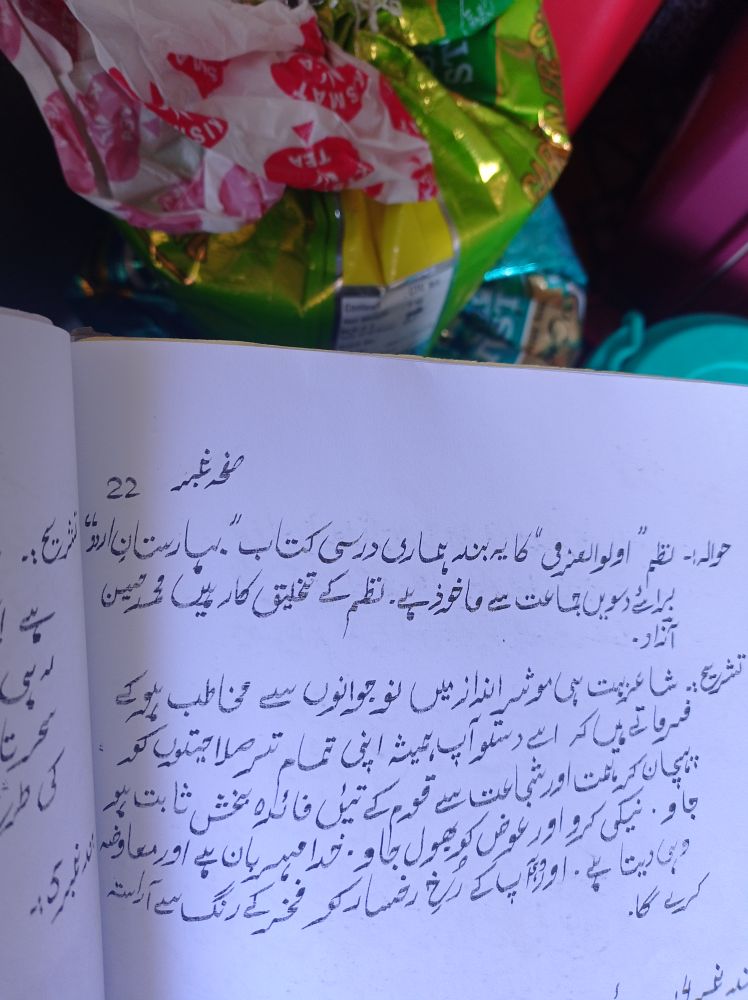 KISMAT
TEA
صفحہ نمبر 22
حوالہ:- نظم "اولوالعزمی" کا یہ بند ہماری درسی کتاب "بہارستانِ اردو"
برائے دسویں جماعت سے ماخوذ ہے۔ نظم کے تخلیق کار ہیں محمد حسین
آزاد۔
تشریح:۔ شاعر بہت ہی موثر انداز میں نوجوانوں سے مخاطب ہو کے
فرماتے ہیں کہ اے دستو آپ ہمیشہ اپنی تمام تر صلاحیتوں کو
پہچان کر ہمت اور شجاعت سے قوم کے تیئں فائدہ بخش ثابت ہو
جاو۔ نیکی کرو اور عوض کو بھول جاو۔ خدا مہربان ہے اور معاوضہ
وہی دیتا ہے۔ اور وہ آپ کے رُخِ رخسار کو فخر کے رنگ سے آراستہ
کرے گا۔
تشریح:۔
ہے
کی طرح
بند نمبر 5:۔
بند نمبر 4